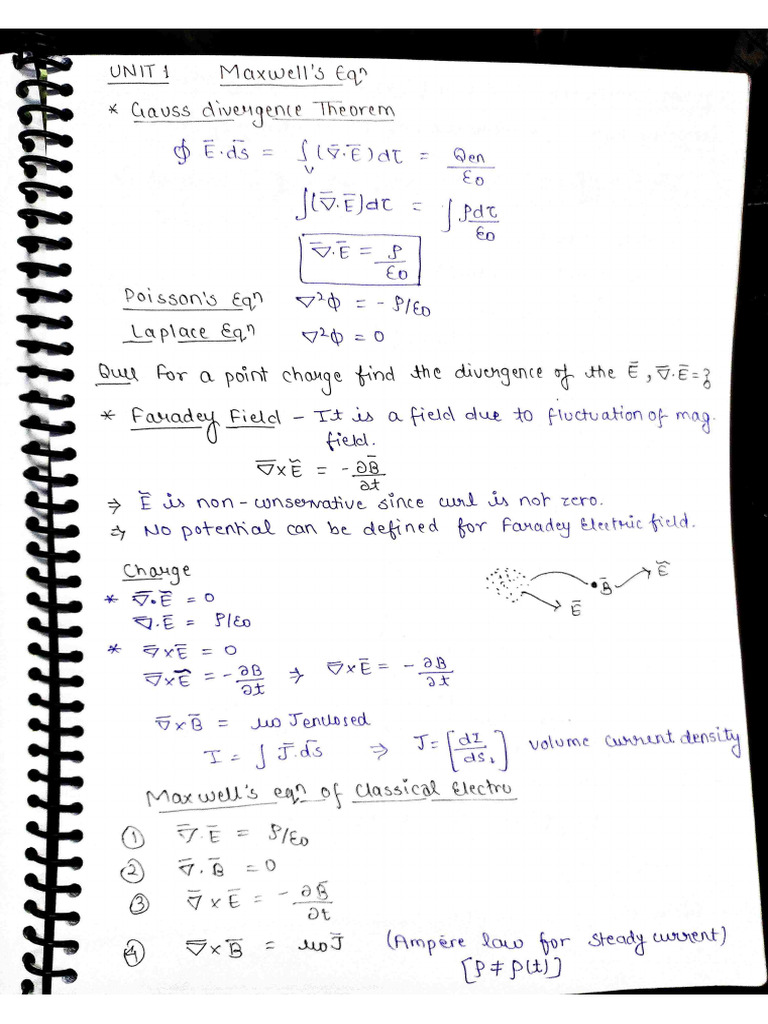 UNIT 1 Maxwell's Eqⁿ
* Gauss divergence Theorem
∮ Ē·ds̄ = ∫ᵥ (∇̄·Ē)dτ = Qen/ε0
∫(∇̄·Ē)dτ = ∫ρdτ/ε0
∇̄·Ē = ρ/ε0
Poisson's Eqⁿ ∇²φ = -ρ/ε0
Laplace Eqⁿ ∇²φ = 0
Que for a point charge find the divergence of the Ē, ∇̄·Ē=?
* Faradey Field - It is a field due to fluctuation of mag.
field.
∇̄×Ẽ = -∂B̄/∂t
⇒ Ẽ is non-conservative since curl is not zero.
⇒ No potential can be defined for Faradey Electric field.
Charge
Ẽ
B̄
Ē
* ∇̄·Ẽ = 0
∇̄·Ē = ρ/ε0
* ∇̄×Ē = 0
∇̄×Ẽ = -∂B/∂t ⇒ ∇̄×Ē = -∂B/∂t
∇̄×B̄ = μ0 Jenclosed
I = ∫ J̄·ds̄ ⇒ J = [dI/ds⊥] volume current density
Maxwell's eqⁿ of Classical Electro
① ∇̄·Ē = ρ/ε0
② ∇̄·B̄ = 0
③ ∇̄×Ē = -∂B̄/∂t
④ ∇̄×B̄ = μ0J̄ (Ampère law for steady current)
[ρ≠ρ(t)]